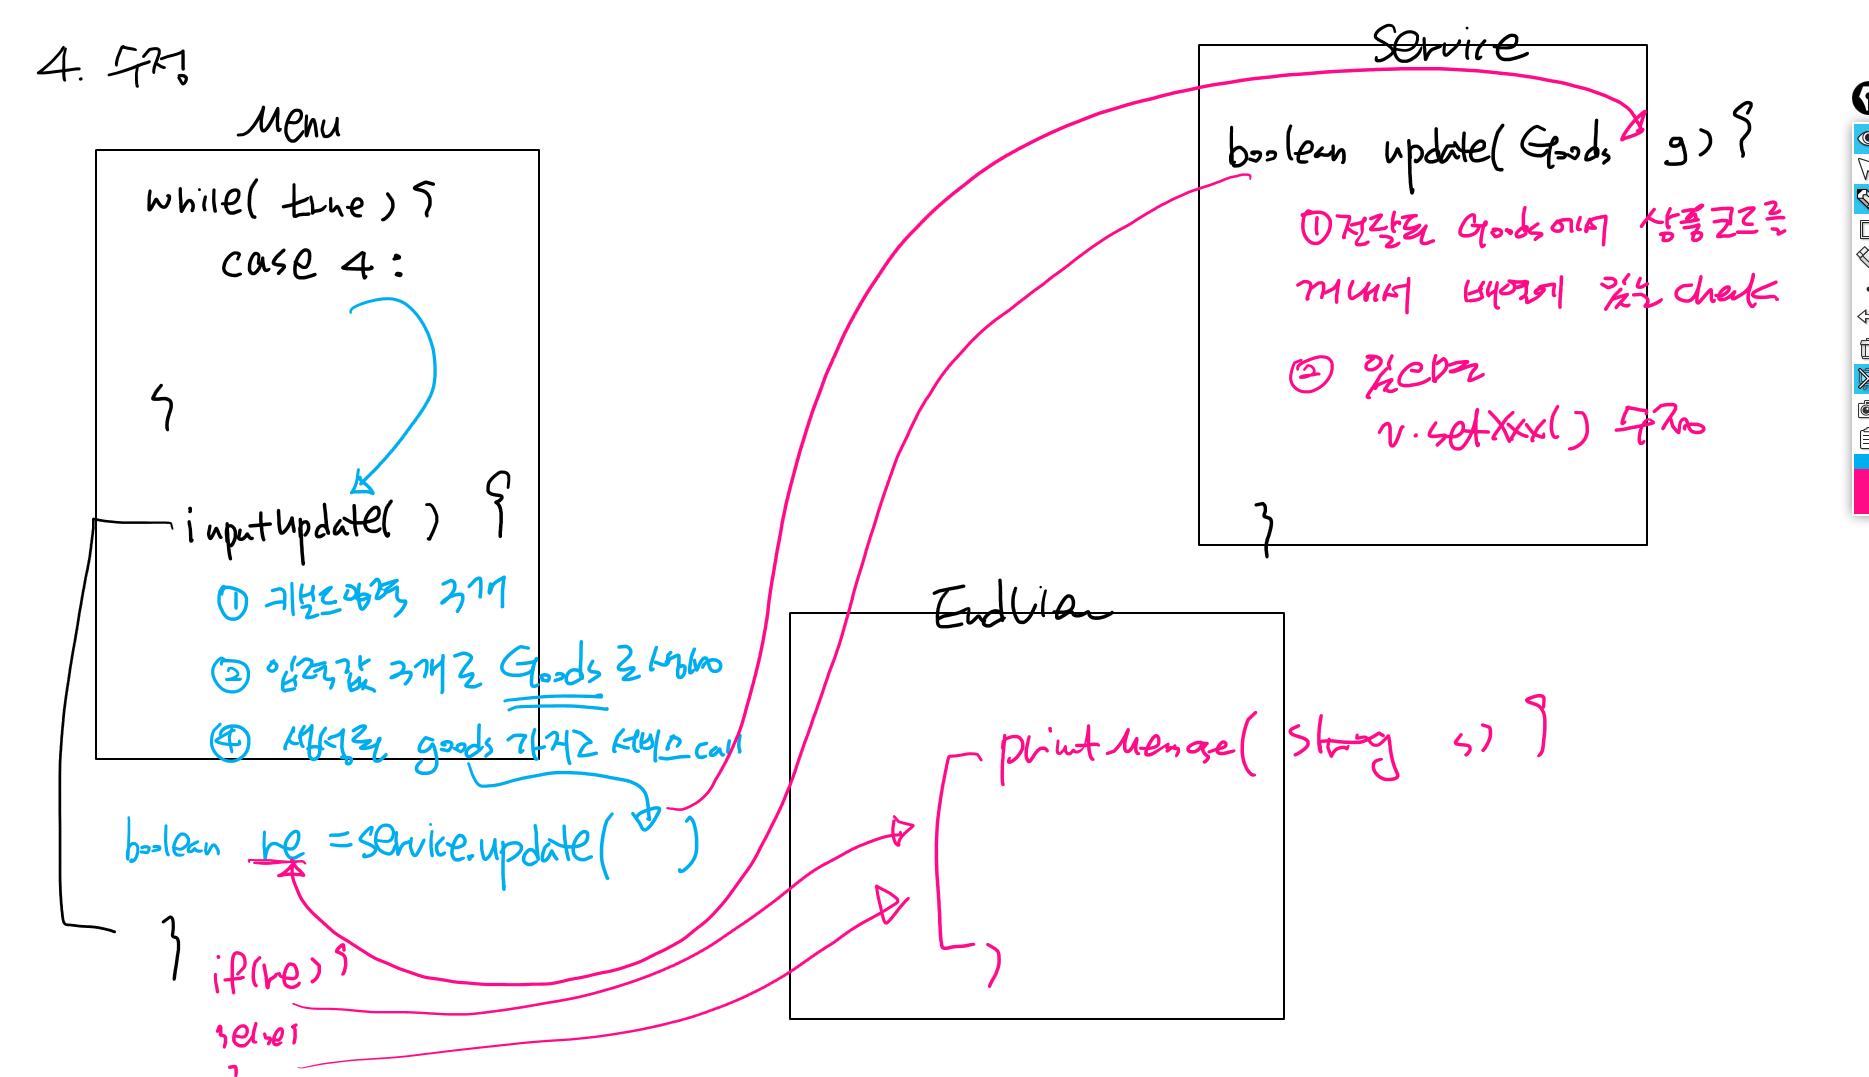 4. 수정
Menu
while( true ) {
case 4 :
}
inputUpdate( ) {
① 키보드입력 3개
② 입력값 3개로 Goods로 생성
④ 생성된 goods 가지고 서비스 call
boolean re = service.update( )
}
if(re) {
}else{
}
Service
boolean update( Goods g ) {
① 전달된 Goods에서 상품코드를
꺼내서 배열에 있는 check
② 있으면
v.setXxx( ) 수정
}
EndView
printMessage( String s) {
}